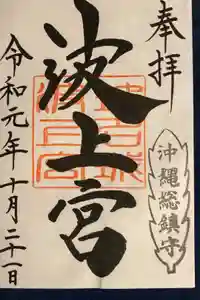 奉拝
沖縄総鎮守
波上宮
令和元年十月二十一日